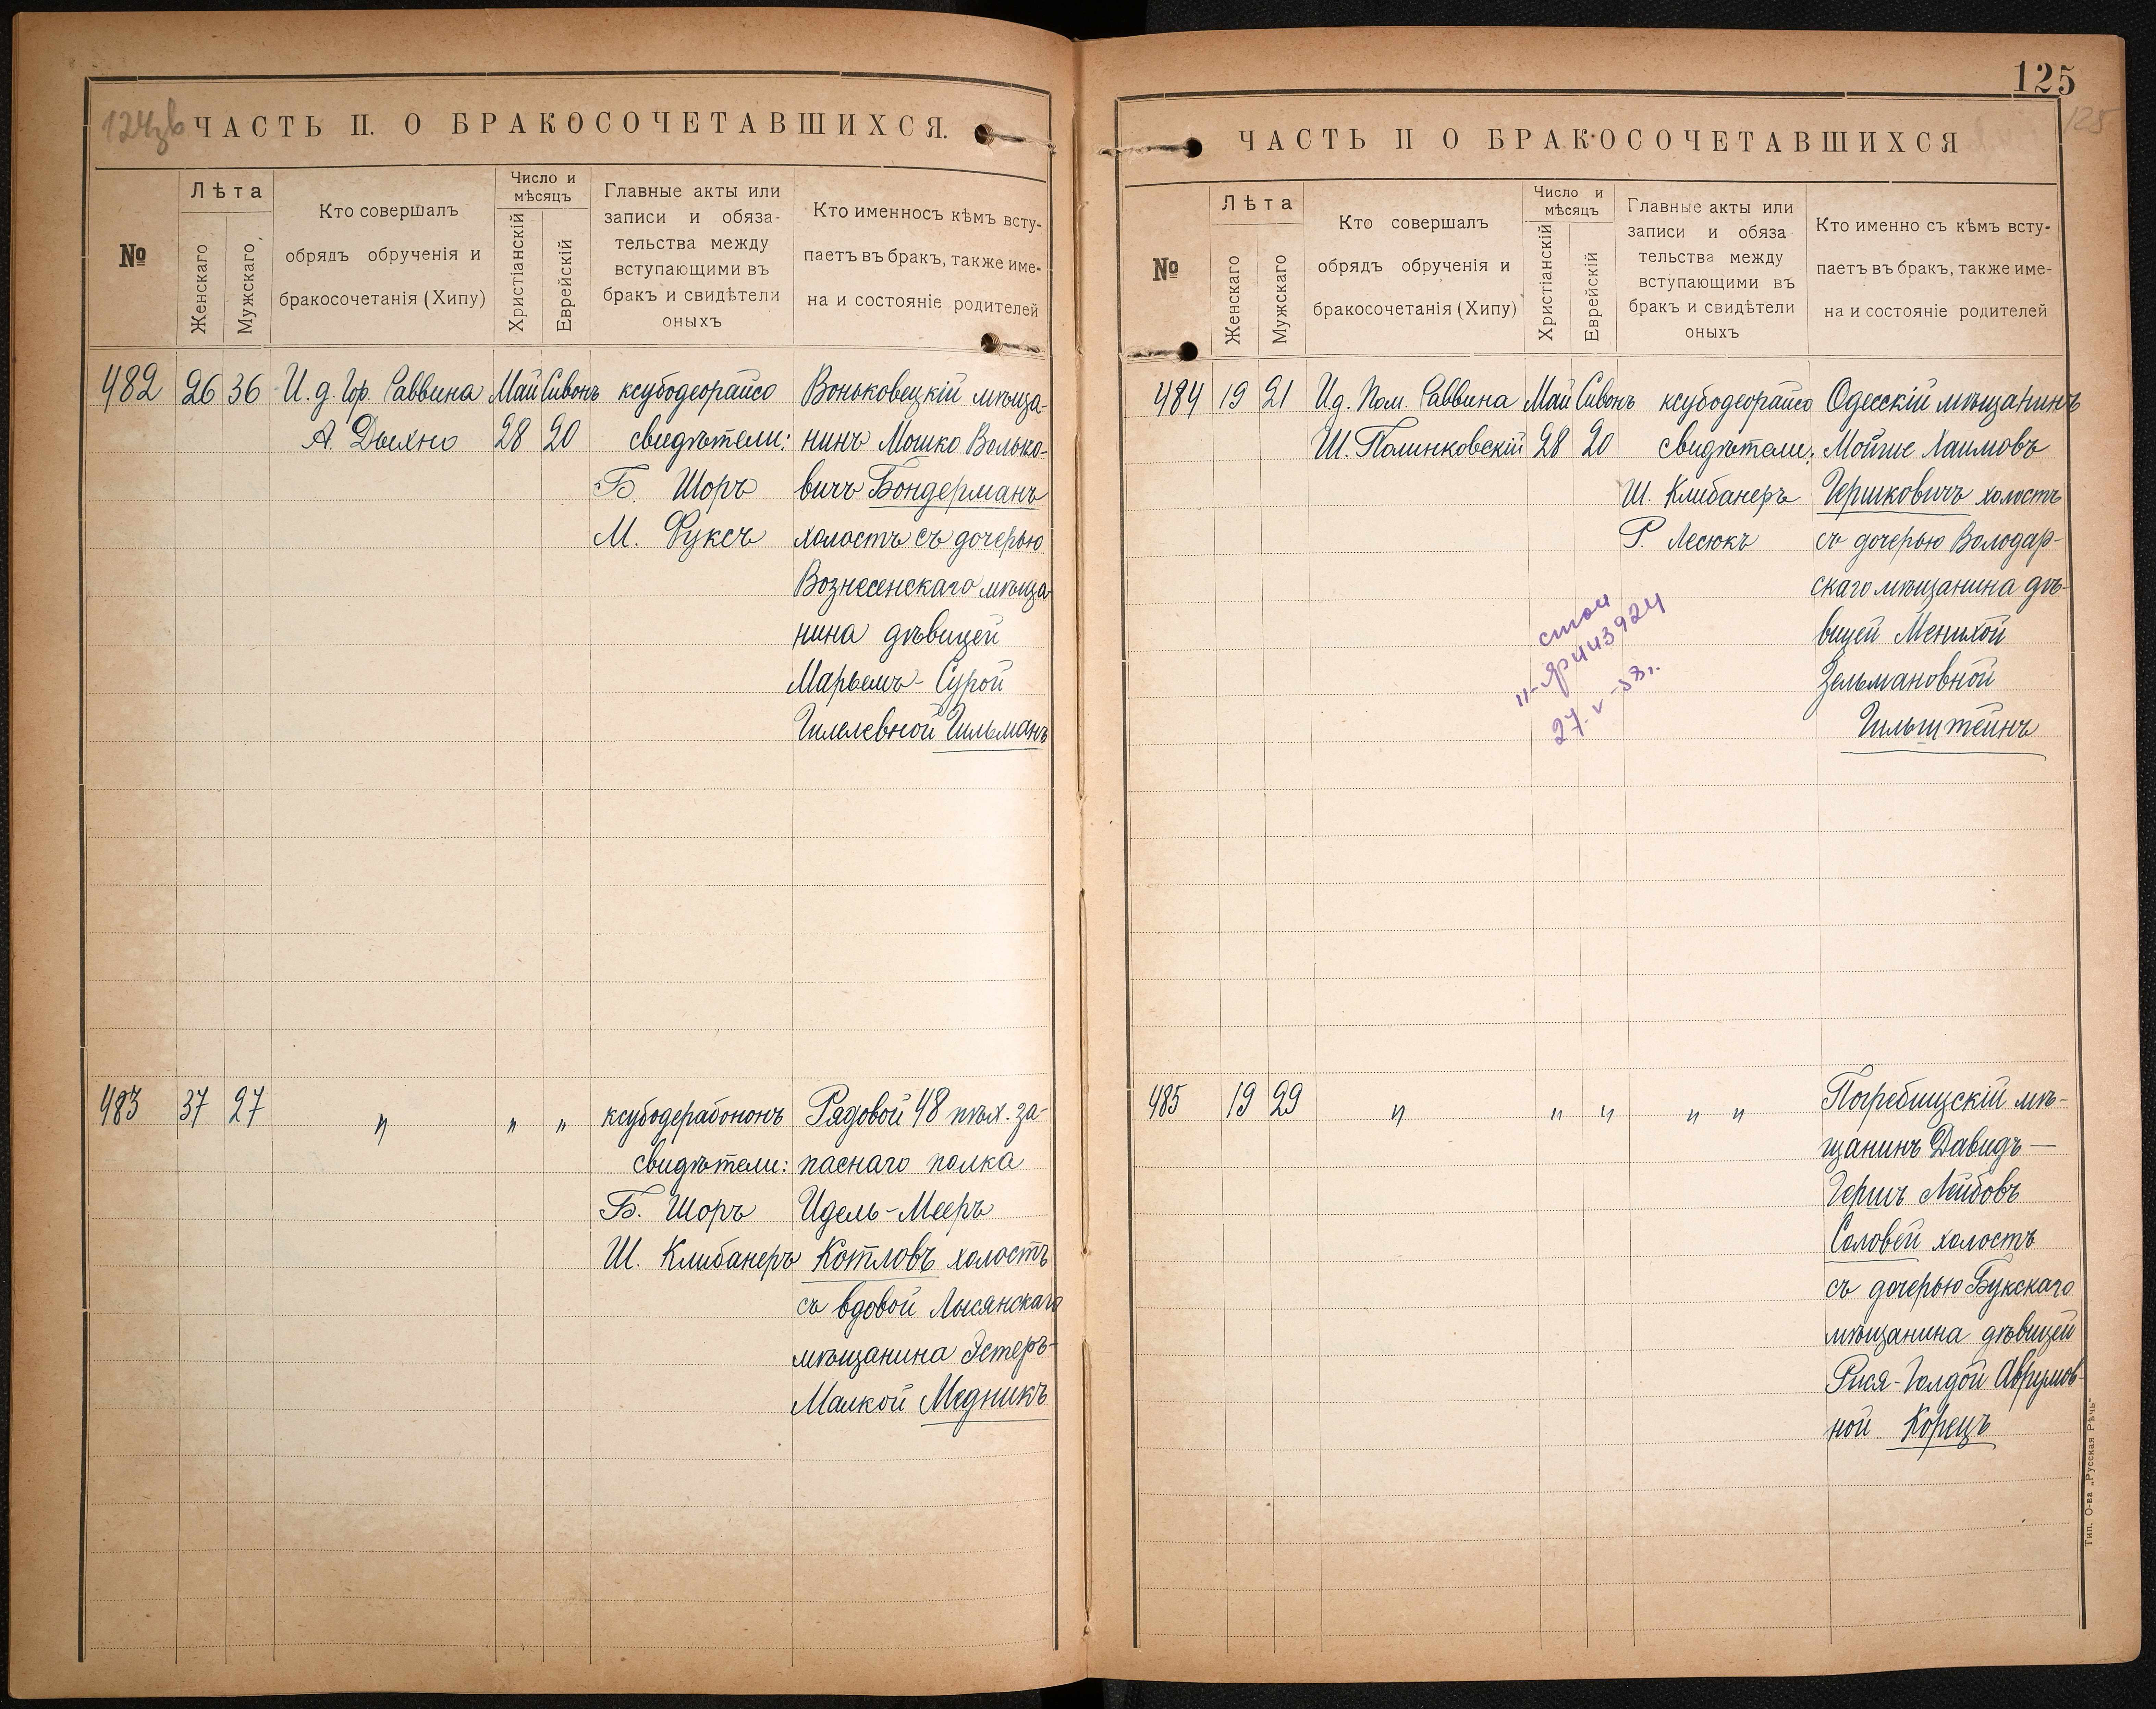 124зв
ЧАСТЬ II. О БРАКОСОЧЕТАВШИХСЯ.
№
Лѣта
Женскаго
Мужскаго
Кто совершалъ
обрядъ обрученія и
бракосочетанія (Хипу)
Число и
мѣсяцъ
Христіанскій
Еврейскій
Главные акты или
записи и обяза-
тельства между
вступающими въ
бракъ и свидѣтели
оныхъ
Кто именносъ кѣмъ всту-
паетъ въ бракъ, также име-
на и состояніе родителей
482 26 36 И. д. Гор. Раввина Май Сивонъ ксубодеорайсо Воньковецкій мѣща-
А. Дыхно 28 20 свидѣтели: нинъ Мошко Волько-
Б. Шоръ вичъ Бондерманъ
М. Фуксъ холостъ съ дочерью
Вознесенскаго мѣща
нина дѣвицей
Марьемъ-Сурой
Гилелевной Гильманъ
483 37 27 „ „ „ ксубодерабононъ Рядовой 48 пѣх. за-
свидѣтели: паснаго полка
Б. Шоръ Идель-Мееръ
Ш. Клибанеръ Котловъ холостъ
съ вдовой Лысянскаго
мѣщанина Эстеръ-
Малкой Медникъ
125
125
ЧАСТЬ II О БРАКОСОЧЕТАВШИХСЯ
№
Лѣта
Женскаго
Мужскаго
Кто совершалъ
обрядъ обрученія и
бракосочетанія (Хипу)
Число и
мѣсяцъ
Христіанскій
Еврейскій
Главные акты или
записи и обяза
тельства между
вступающими въ
бракъ и свидѣтели
оныхъ
Кто именно съ кѣмъ всту-
паетъ въ бракъ, также име-
на и состояніе родителей
484 19 21 И д. Пом. Раввина Май Сивонъ ксубодеорайсо Одесскій мѣщанинъ
Ш. Полинковскій 28 20 свидѣтели: Мойше Хаимовъ
Ш. Клибанеръ Гершковичъ холостъ
Р. Лесюкъ съ дочерью Володар-
скаго мѣщанина дѣ-
вицей Менихой
Зельмановной
Гильштейнъ
27-V-58 г.
485 19 29 „ „ „ „ „ Погребищскій мѣ-
щанинъ Давидъ-
Гершъ Лейбовъ
Соловей холостъ
съ дочерью Букскаго
мѣщанина дѣвицей
Рися-Голдой Аврумов-
ной Корецъ
Тип. О-ва „Русская Рѣчь"